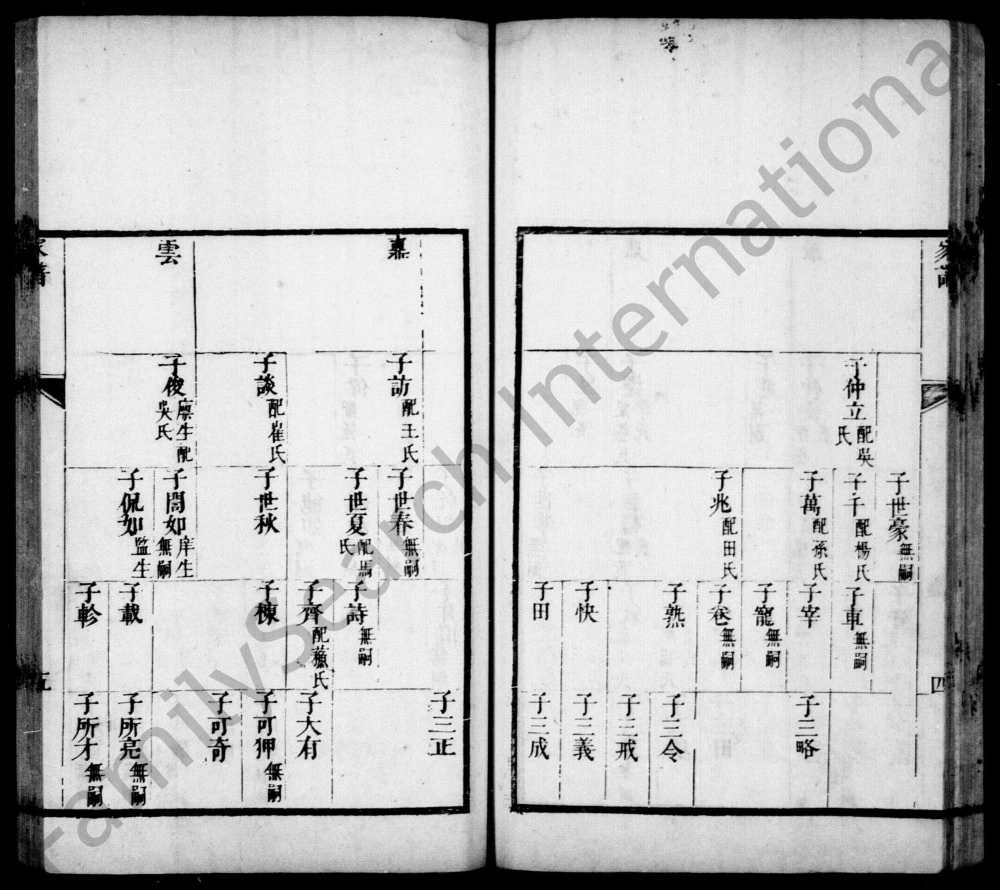 家譜
四
子仲立配吳氏
子世豪無嗣
子千配楊氏
子萬配孫氏
子兆配田氏
子車無嗣
子宰
子寵無嗣
子卷無嗣
子熟
子快
子田
子三略
子三令
子三戒
子三義
子三成
嘉
雲
子訪配王氏
子談配崔氏
子俊廩生配吳氏
子世春無嗣
子世夏配馬氏
子世秋
子誾如庠生無嗣
子侃如監生
子詩無嗣
子齊配蕭氏
子棟
子載
子軫
子三正
子大有
子可狎無嗣
子可奇
子所完無嗣
子所才無嗣
家譜
五
FamilySearch International